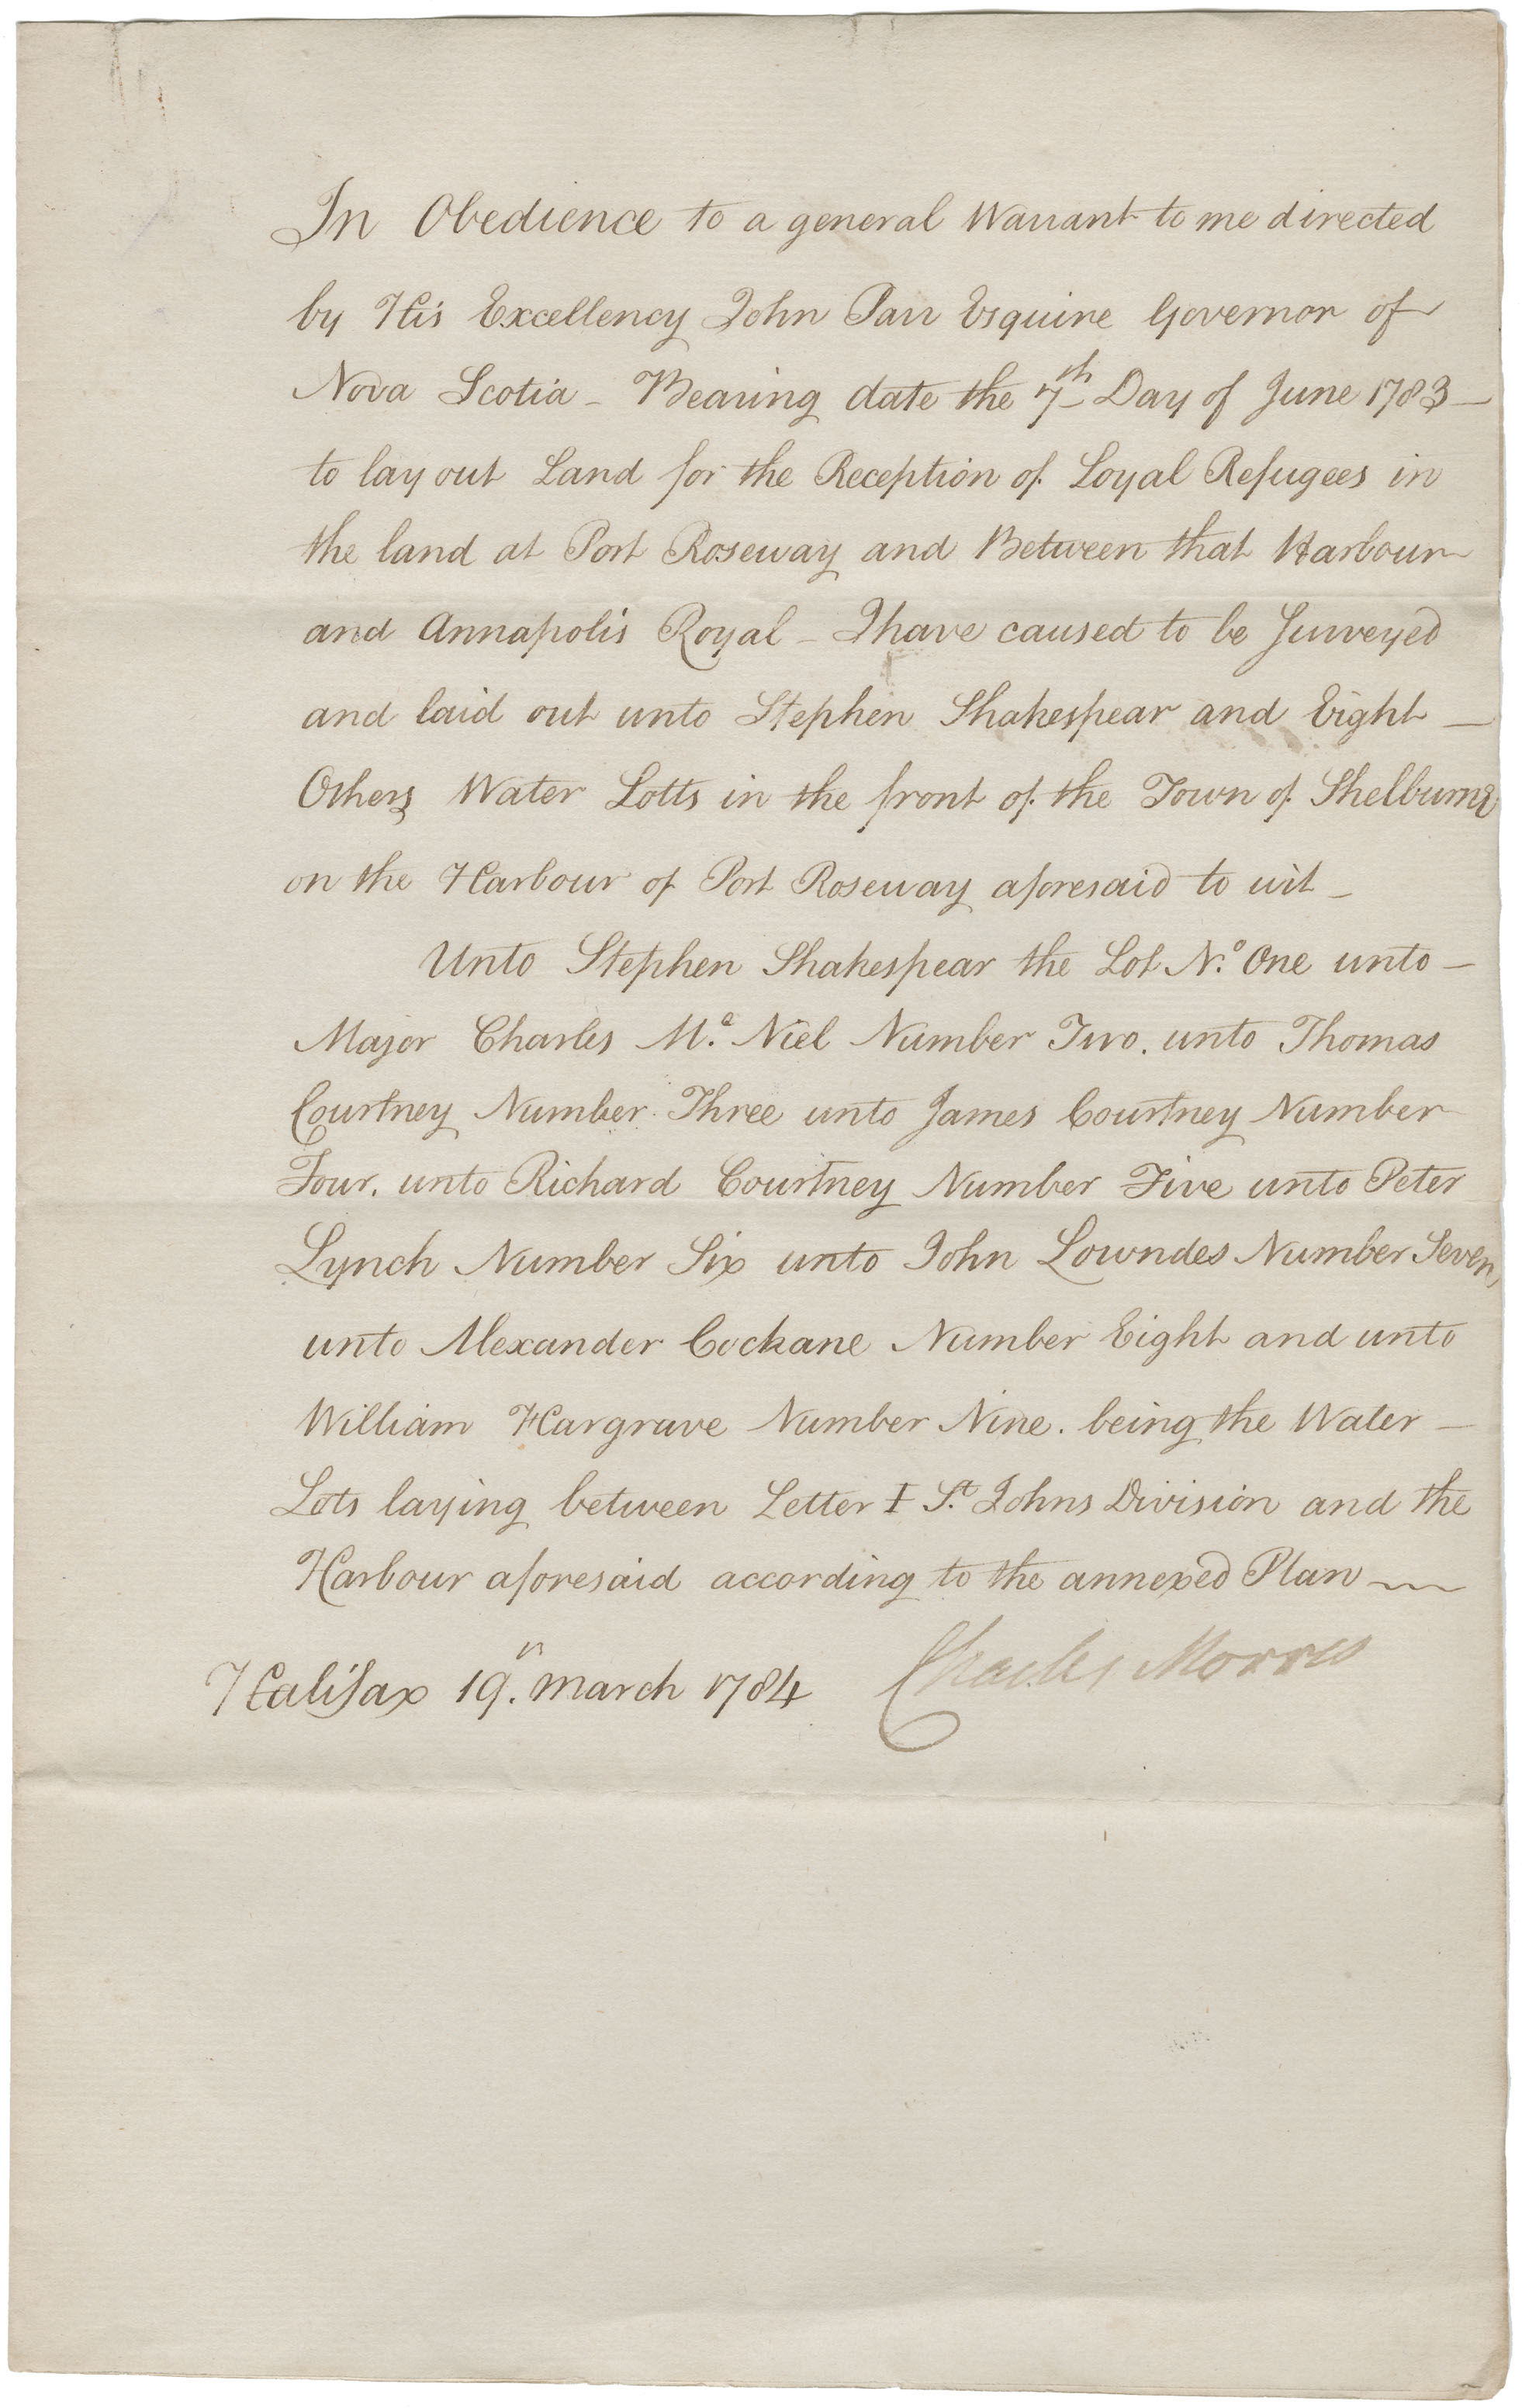 In Obedience to a general Warrant to me directed
by His Excellency John Parr Esquire Governor of
Nova Scotia - Bearing date the 7th Day of June 1783 -
to lay out Land for the Reception of Loyal Refugees in
the land at Port Roseway and Between that Harbour
and Annapolis Royal - I have caused to be Surveyed
and laid out unto Stephen Shakespear and Eight -
Others Water Lotts in the front of the Town of Shelburne
on the Harbour of Port Roseway aforesaid to wit -
Unto Stephen Shakespear the Lot No. One unto -
Major Charles Mc. Niel Number Two. unto Thomas
Courtney Number Three unto James Courtney Number
Four. unto Richard Courtney Number Five unto Peter
Lynch Number Six unto John Lowndes Number Seven,
unto Alexander Cockane Number Eight and unto
William Hargrave Number Nine. being the Water -
Lots laying between Letter I St. Johns Division and the
Harbour aforesaid according to the annexed Plan ~
Halifax 19th. March 1784 Charles Morris